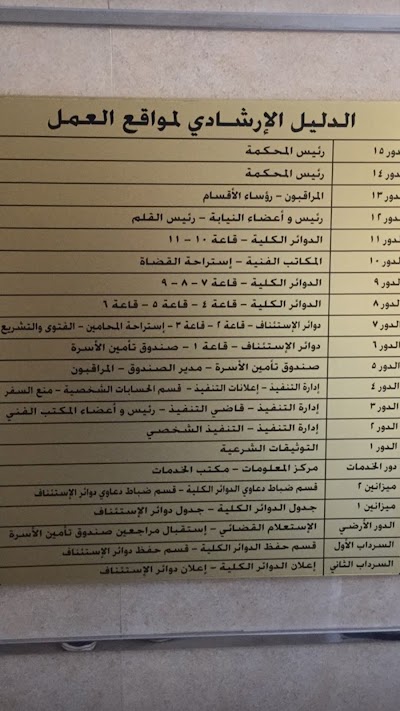 الدليل الإرشادي لمواقع العمل
دور ١٥ رئيس المحكمة
دور ١٤ رئيس المحكمة
دور ١٣ المراقبون - رؤساء الأقسام
دور ١٢ رئيس و أعضاء النيابة - رئيس القلم
دور ١١ الدوائر الكلية - قاعة ١٠ - ١١
دور ١٠ المكاتب الفنية - إستراحة القضاة
دور ٩ الدوائر الكلية - قاعة ٧ - ٨ - ٩
دور ٨ الدوائر الكلية - قاعة ٤ - قاعة ٥ - قاعة ٦
دور ٧ دوائر الإستئناف - قاعة ٢ - قاعة ٣ - إستراحة المحامين - الفتوى والتشريع
دور ٦ دوائر الإستئناف - قاعة ١ - صندوق تأمين الأسرة
دور ٥ صندوق تأمين الأسرة - مدير الصندوق - المراقبون
الدور ٤ إدارة التنفيذ - إعلانات التنفيذ - قسم الحسابات الشخصية - منع السفر
الدور ٣ إدارة التنفيذ - قاضي التنفيذ - رئيس و أعضاء المكتب الفني
الدور ٢ إدارة التنفيذ - التنفيذ الشخصي
الدور ١ التوثيقات الشرعية
دور الخدمات مركز المعلومات - مكتب الخدمات
ميزانين ٢ قسم ضباط دعاوي الدوائر الكلية - قسم ضباط دعاوي دوائر الإستئناف
ميزانين ١ جدول الدوائر الكلية - جدول دوائر الإستئناف
الدور الأرضي الإستعلام القضائي - إستقبال مراجعين صندوق تأمين الأسرة
السرداب الأول قسم حفظ الدوائر الكلية - قسم حفظ دوائر الإستئناف
السرداب الثاني إعلان الدوائر الكلية - إعلان دوائر الإستئناف